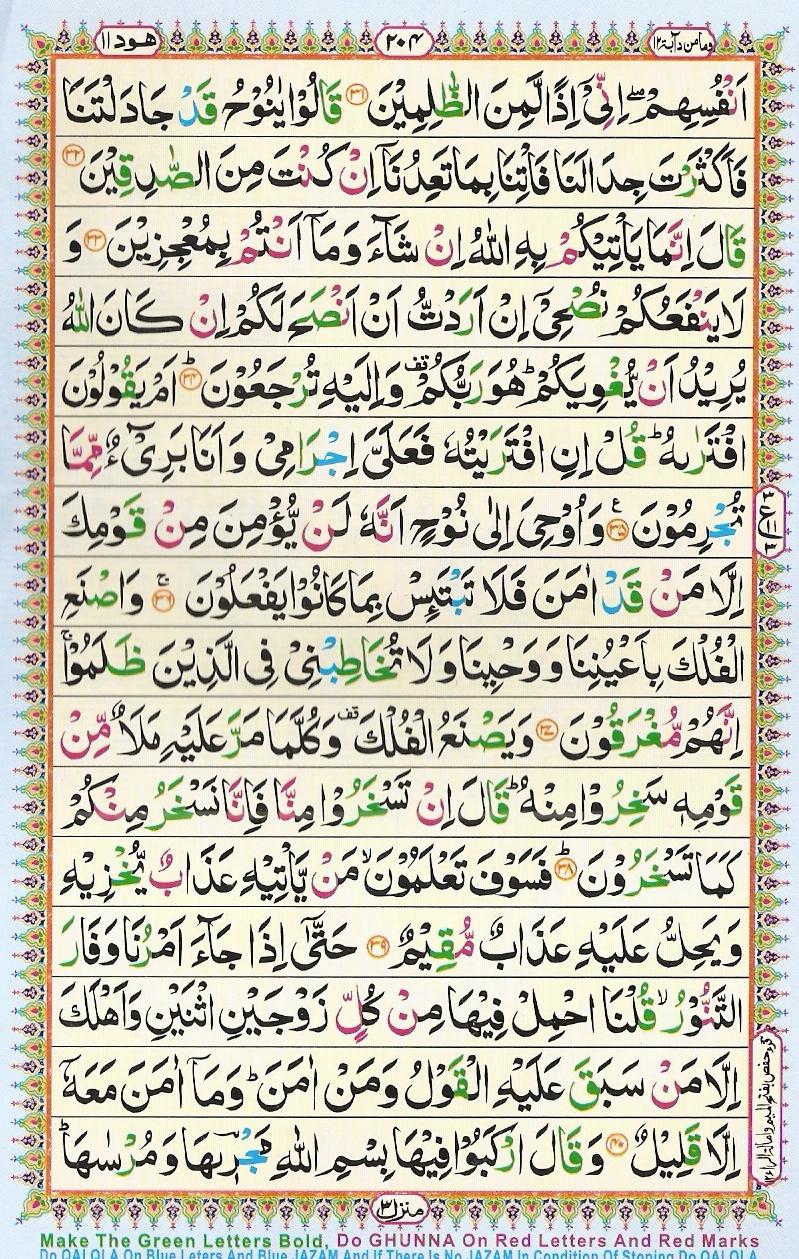 وما من دآبة ١٢ ٢٠٤ هود ١١
اَنْفُسِهِمْ ۖۚ اِنِّیْۤ اِذًا لَّمِنَ الظّٰلِمِیْنَ ﴿۳۱﴾ قَالُوْا یٰنُوْحُ قَدْ جَادَلْتَنَا
فَاَكْثَرْتَ جِدَالَنَا فَاْتِنَا بِمَا تَعِدُنَاۤ اِنْ كُنْتَ مِنَ الصّٰدِقِیْنَ ﴿۳۲﴾
قَالَ اِنَّمَا یَاْتِیْكُمْ بِهِ اللّٰهُ اِنْ شَآءَ وَمَاۤ اَنْتُمْ بِمُعْجِزِیْنَ ﴿۳۳﴾ وَ
لَا یَنْفَعُكُمْ نُصْحِیْۤ اِنْ اَرَدْتُّ اَنْ اَنْصَحَ لَكُمْ اِنْ كَانَ اللّٰهُ
یُرِیْدُ اَنْ یُّغْوِیَكُمْ ؕ هُوَ رَبُّكُمْ ۫ وَاِلَیْهِ تُرْجَعُوْنَ ﴿۳۴﴾ ؕ اَمْ یَقُوْلُوْنَ
افْتَرٰىهُ ؕ قُلْ اِنِ افْتَرَیْتُهٗ فَعَلَیَّ اِجْرَامِیْ وَاَنَا بَرِیْٓءٌ مِّمَّا
تُجْرِمُوْنَ ﴿۳۵﴾ ع وَاُوْحِیَ اِلٰی نُوْحٍ اَنَّهٗ لَنْ یُّؤْمِنَ مِنْ قَوْمِكَ
اِلَّا مَنْ قَدْ اٰمَنَ فَلَا تَبْتَئِسْ بِمَا كَانُوْا یَفْعَلُوْنَ ﴿۳۶﴾ ۚ وَاصْنَعِ
الْفُلْكَ بِاَعْیُنِنَا وَوَحْیِنَا وَلَا تُخَاطِبْنِیْ فِی الَّذِیْنَ ظَلَمُوْا ۚ
اِنَّهُمْ مُّغْرَقُوْنَ ﴿۳۷﴾ وَیَصْنَعُ الْفُلْكَ ۫ وَكُلَّمَا مَرَّ عَلَیْهِ مَلَاٌ مِّنْ
قَوْمِهٖ سَخِرُوْا مِنْهُ ؕ قَالَ اِنْ تَسْخَرُوْا مِنَّا فَاِنَّا نَسْخَرُ مِنْكُمْ
كَمَا تَسْخَرُوْنَ ﴿۳۸﴾ ؕ فَسَوْفَ تَعْلَمُوْنَ ۙ مَنْ یَّاْتِیْهِ عَذَابٌ یُّخْزِیْهِ
وَیَحِلُّ عَلَیْهِ عَذَابٌ مُّقِیْمٌ ﴿۳۹﴾ حَتّٰۤی اِذَا جَآءَ اَمْرُنَا وَفَارَ
التَّنُّوْرُ ۙ قُلْنَا احْمِلْ فِیْهَا مِنْ كُلٍّ زَوْجَیْنِ اثْنَیْنِ وَاَهْلَكَ
اِلَّا مَنْ سَبَقَ عَلَیْهِ الْقَوْلُ وَمَنْ اٰمَنَ ؕ وَمَاۤ اٰمَنَ مَعَهٗۤ
اِلَّا قَلِیْلٌ ﴿۴۰﴾ وَقَالَ ارْكَبُوْا فِیْهَا بِسْمِ اللّٰهِ مَجْرٖىهَا وَمُرْسٰىهَا ؕ
منزل ٣
Make The Green Letters Bold, Do GHUNNA On Red Letters And Red Marks
Do QALQLA On Blue Leters And Blue JAZAM And If There Is No JAZAM In Condition Of Stoping Do QALQLA